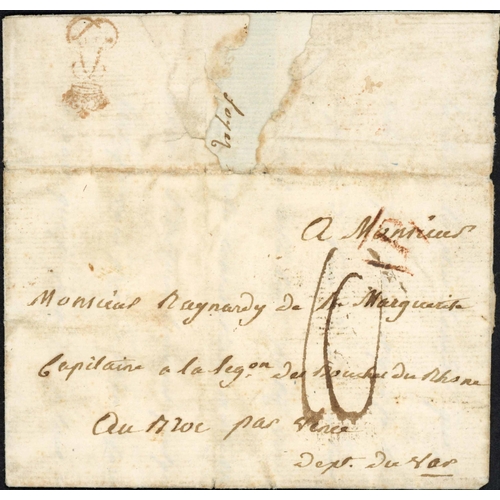 A Monsieur
Monsieur Raynardy de Ste Marguerite
Capitaine a la legon des Bouches du Rhone
Au Broc par Vence
dept. du Var
10